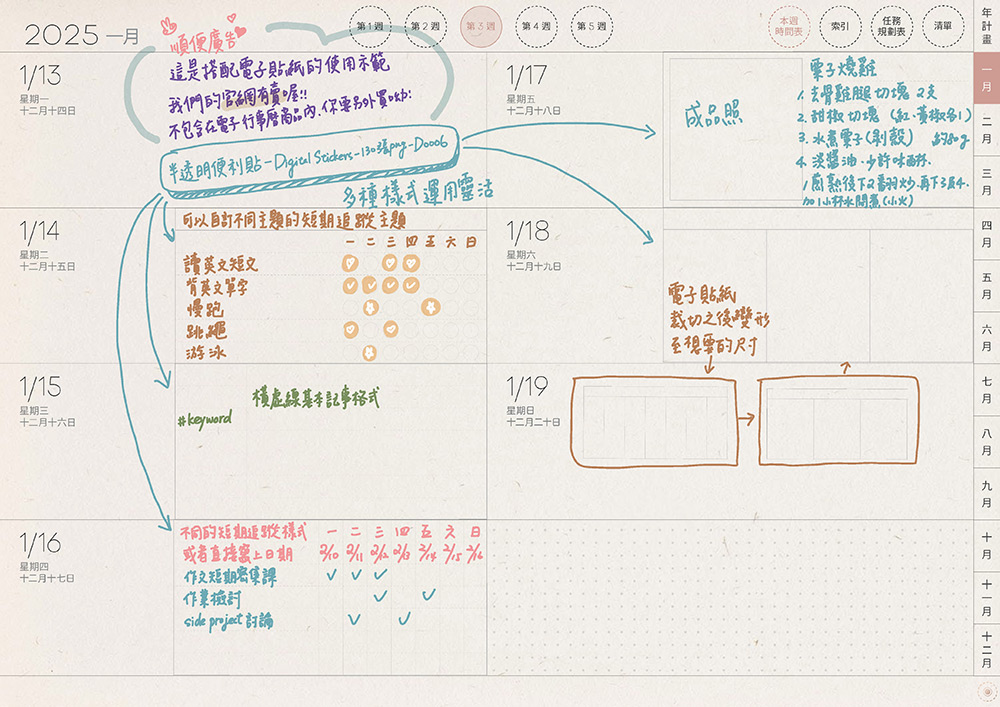 2025 一月
第1週
第2週
第3週
第4週
第5週
本週
時間表
索引
任務
規劃表
清單
年計畫
一月
二月
三月
四月
五月
六月
七月
八月
九月
十月
十一月
十二月
順便廣告
這是搭配電子貼紙的使用示範
我們的官網有賣喔!!
不包含在電子行事曆商品內,你要另外買呦!
半透明便利貼-Digital Stickers-130張png-D0006
多種樣式運用靈活
1/13
星期一
十二月十四日
1/14
星期二
十二月十五日
可以自訂不同主題的短期追蹤主題
一 二 三 四 五 六 日
讀英文短文
背英文單字
慢跑
跳繩
游泳
1/15
星期三
十二月十六日
橫虛線基本記事格式
#keyword
1/16
星期四
十二月十七日
不同的短期追蹤樣式 一 二 三 四 五 六 日
或者直接寫上日期 2/10 2/11 2/12 2/13 2/14 2/15 2/16
作文短期密集課
作業檢討
side project 討論
1/17
星期五
十二月十八日
成品照
栗子燒雞
1. 去骨雞腿切塊 2支
2. 甜椒切塊 (紅、黃椒各1)
3. 水煮栗子(剝殼) 約80g
4. 淡醬油、少許味醂
1煎熟後下2翻炒,再下3及4.
加1小杯水悶煮(小火)
1/18
星期六
十二月十九日
電子貼紙
裁切之後變形
至想要的尺寸
1/19
星期日
十二月二十日